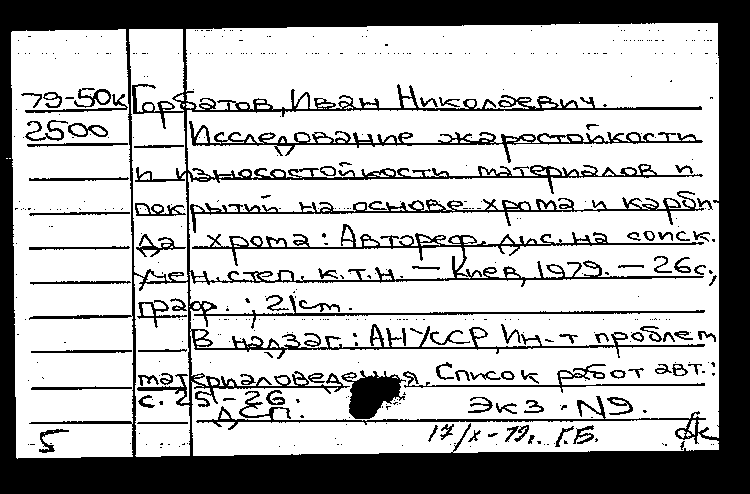 79-50к Горбатов, Иван Николаевич.
2500 Исследование жаростойкости
и износостойкости материалов и
покрытий на основе хрома и карби-
да хрома: Автореф. дис. на соиск.
учен. степ. к.т.н. — Киев, 1979. — 26с.,
граф. ; 21см.
В надзаг.: АН УССР, Ин-т проблем
материаловедения. Список работ авт.:
с. 25-26.
ДСП. Экз. N9.
5 17/X-79г. Г.Б.